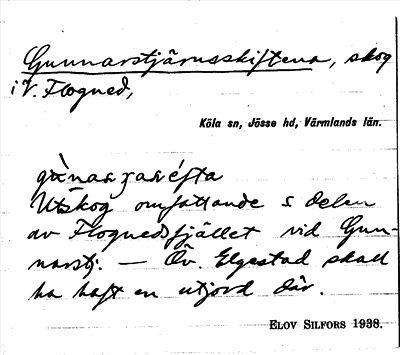 Gunnarstjärnsskiftena, skog
i V. Flogned,
Köla sn, Jösse hd, Värmlands län.
Utskog omfattande s delen
av Flognedsfjället vid Gun-
narstj. — Öv. Elgestad skall
ha haft en utjord där.
ELOV SILFORS 1938.